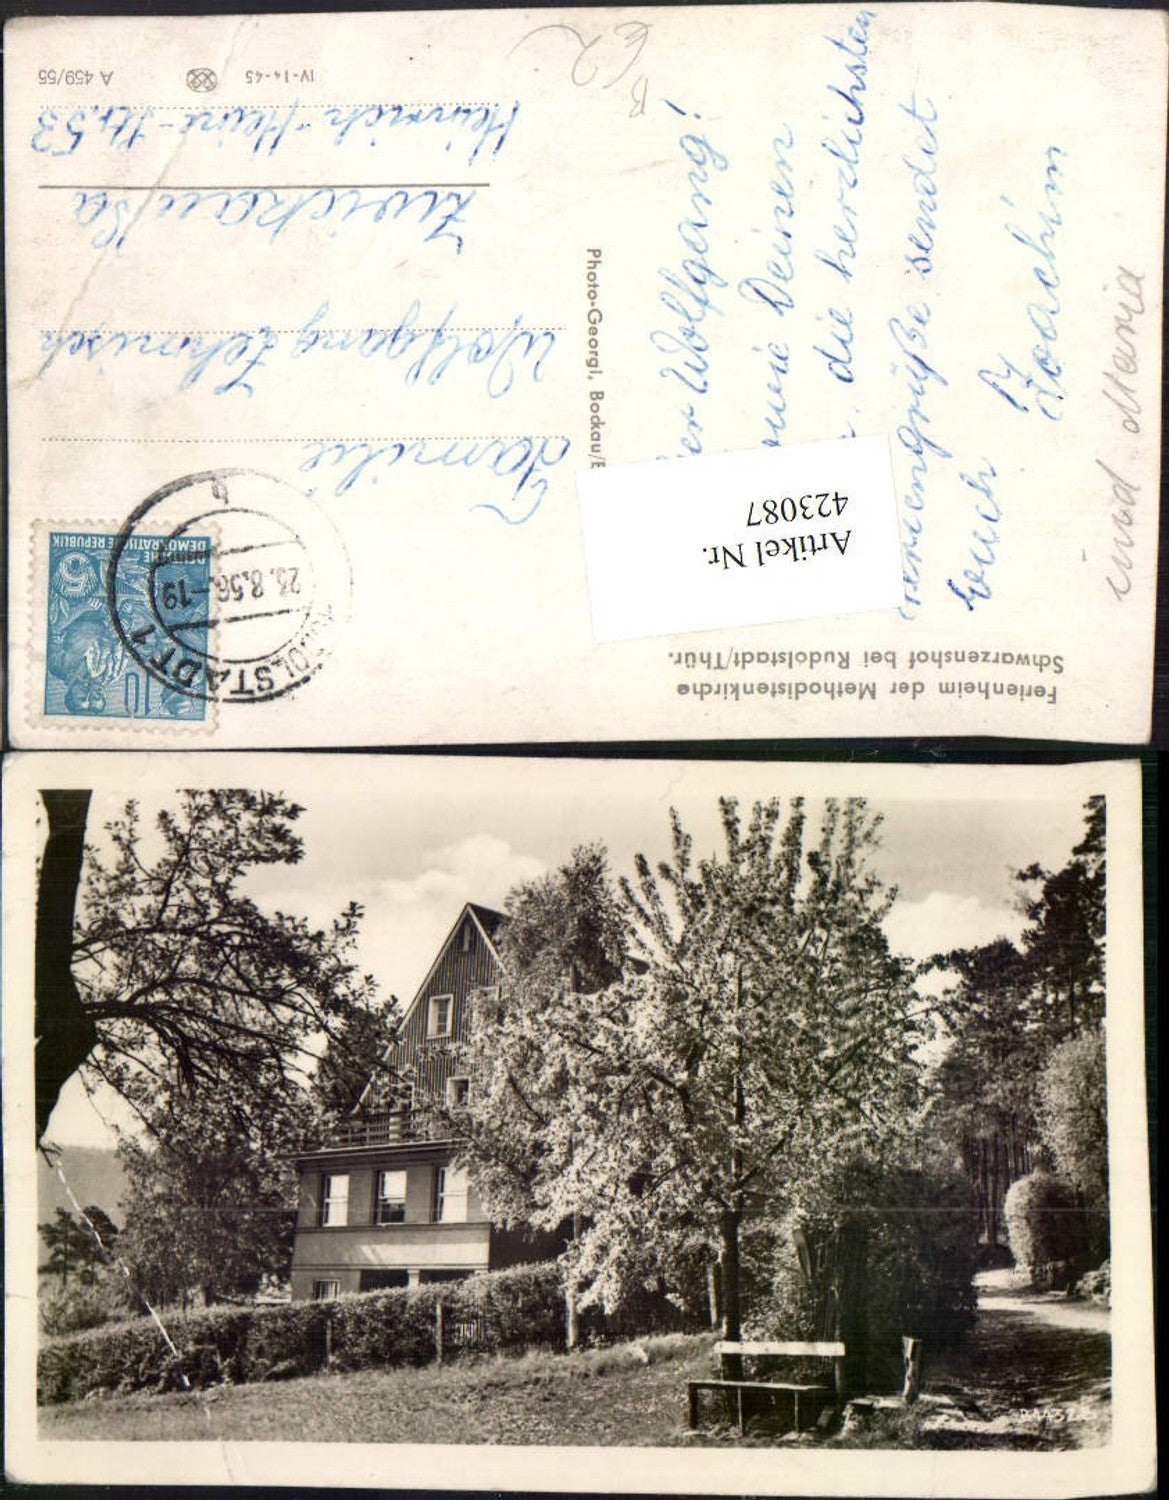 Ferienheim der Methodistenkirche
Schwarzenshof bei Rudolstadt/Thür.
Wolfgang!
Deinen
die herzlichsten
Feriengrüße sendet
Euch
Joachim
und Maria
Artikel Nr.
423087
Photo-Georgi, Bockau/E
DEUTSCHE
DEMOKRATISCHE REPUBLIK
5
10
RUDOLSTADT 1
23.8.56.-19
q
Familie
Wolfgang
Zwickau/Sa
Heinrich-Heine-Str. 53
IV-14-45
A 459/55